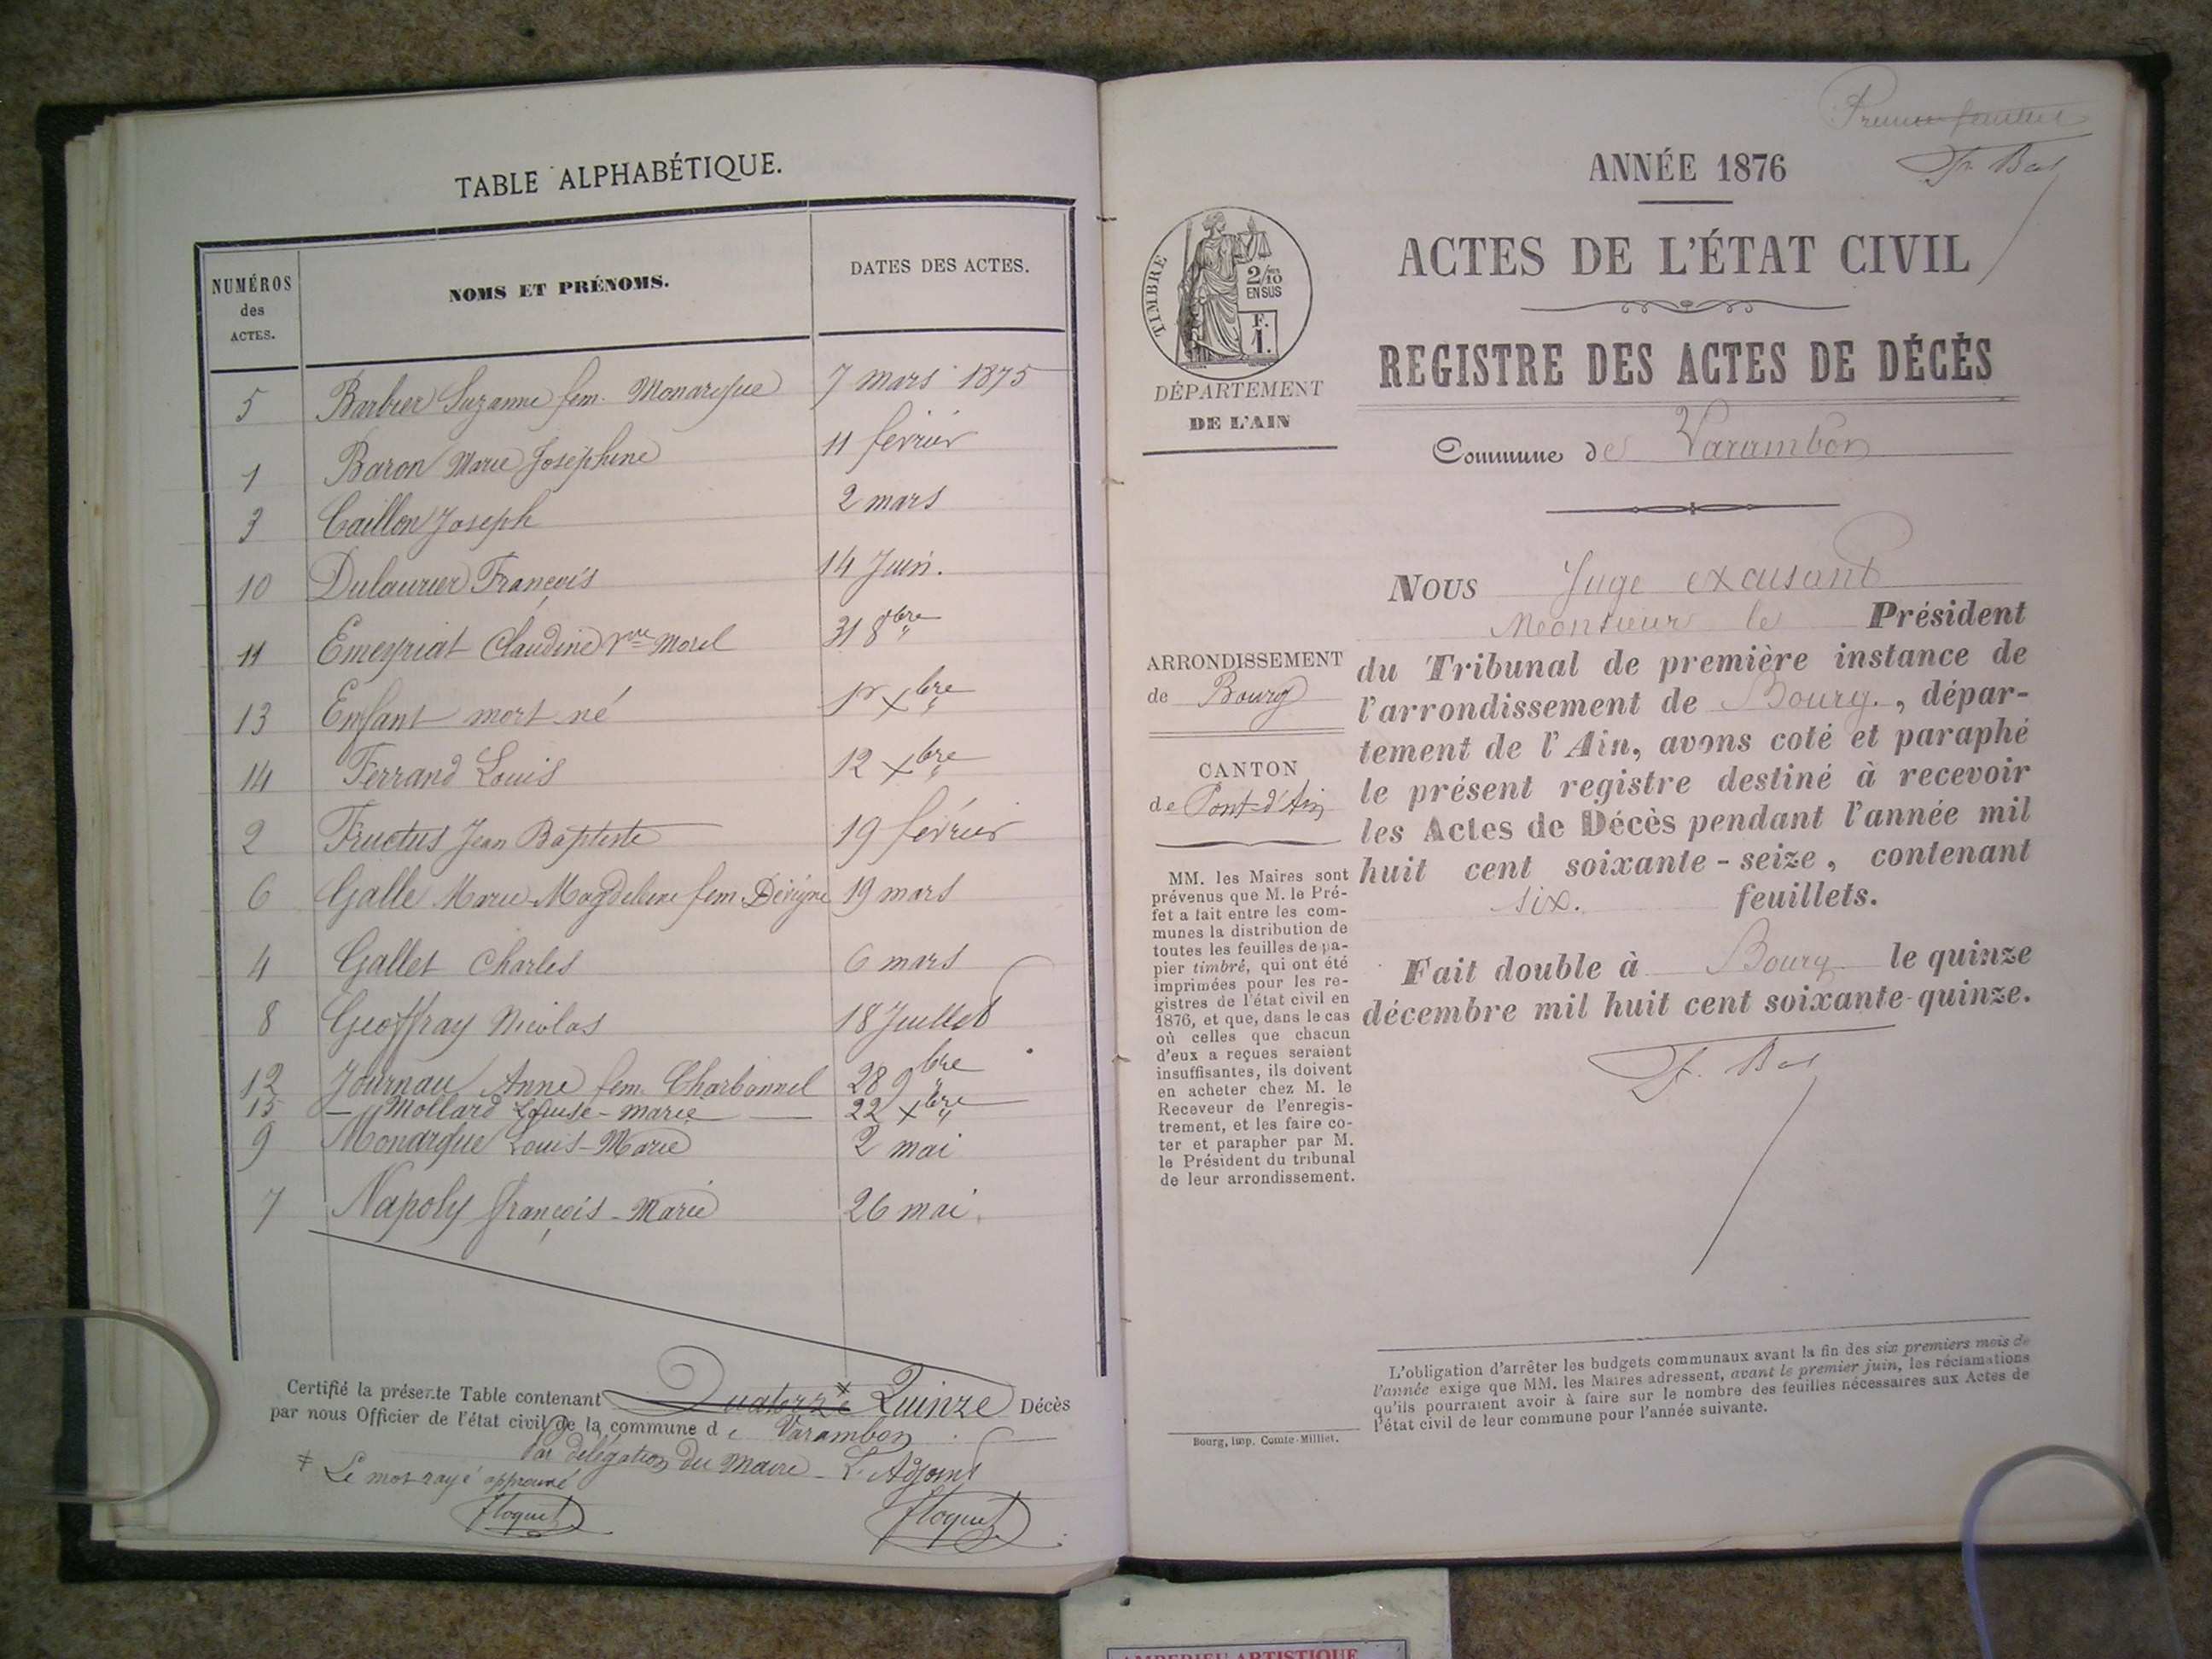 TABLE ALPHABÉTIQUE.
NUMÉROS des ACTES.
NOMS ET PRÉNOMS.
DATES DES ACTES.
5 Barbier Suzanne fem. Monarque 7 mars 1875
1 Baron Marie Joséphine 11 février
3 Caillon Joseph 2 mars
10 Dulaurier François 14 Juin.
11 Emeyriat Claudine vve Morel 31 8bre
13 Enfant mort né 1r Xbre
14 Ferrand Louis 12 Xbre
2 Fructus Jean Baptiste 19 février
6 Galle Marie-Magdeleine fem. Dévigne 19 mars
4 Gallet Charles 6 mars
8 Geoffray Nicolas 18 Juillet
12 Journau Anne fem. Charbonnel 28 9bre
15 – Mollard Louise-marie — 22 Xbre
9 Monarque Louis-Marie 2 mai
7 Napoly françois-Marie 26 mai.
Certifié la présente Table contenant Quatorze * Quinze Décès
par nous Officier de l'état civil de la commune de Varambon
Par délégation du Maire L'Adjoint
* Le mot rayé approuvé
Floquet
Floquet
Premier feuillet
Bal
ANNÉE 1876
ACTES DE L'ÉTAT CIVIL
REGISTRE DES ACTES DE DÉCÈS
TIMBRE
2/10 EN SUS
F. 1.
DÉPARTEMENT
DE L'AIN
Commune de Varambon
ARRONDISSEMENT
de Bourg
CANTON
de Pont-d'Ain
MM. les Maires sont
prévenus que M. le Pré-
fet a fait entre les com-
munes la distribution de
toutes les feuilles de pa-
pier timbré, qui ont été
imprimées pour les re-
gistres de l'état civil en
1876, et que, dans le cas
où celles que chacun
d'eux a reçues seraient
insuffisantes, ils doivent
en acheter chez M. le
Receveur de l'enregis-
trement, et les faire co-
ter et parapher par M.
le Président du tribunal
de leur arrondissement.
Bourg, imp. Comte-Milliet.
NOUS Juge excusant
Monsieur le Président
du Tribunal de première instance de
l'arrondissement de Bourg., dépar-
tement de l'Ain, avons coté et paraphé
le présent registre destiné à recevoir
les Actes de Décès pendant l'année mil
huit cent soixante-seize, contenant
six. feuillets.
Fait double à Bourg le quinze
décembre mil huit cent soixante-quinze.
Bal
L'obligation d'arrêter les budgets communaux avant la fin des six premiers mois de
l'année exige que MM. les Maires adressent, avant le premier juin, les réclamations
qu'ils pourraient avoir à faire sur le nombre des feuilles nécessaires aux Actes de
l'état civil de leur commune pour l'année suivante.
AMBERIEU ARTISTIQUE